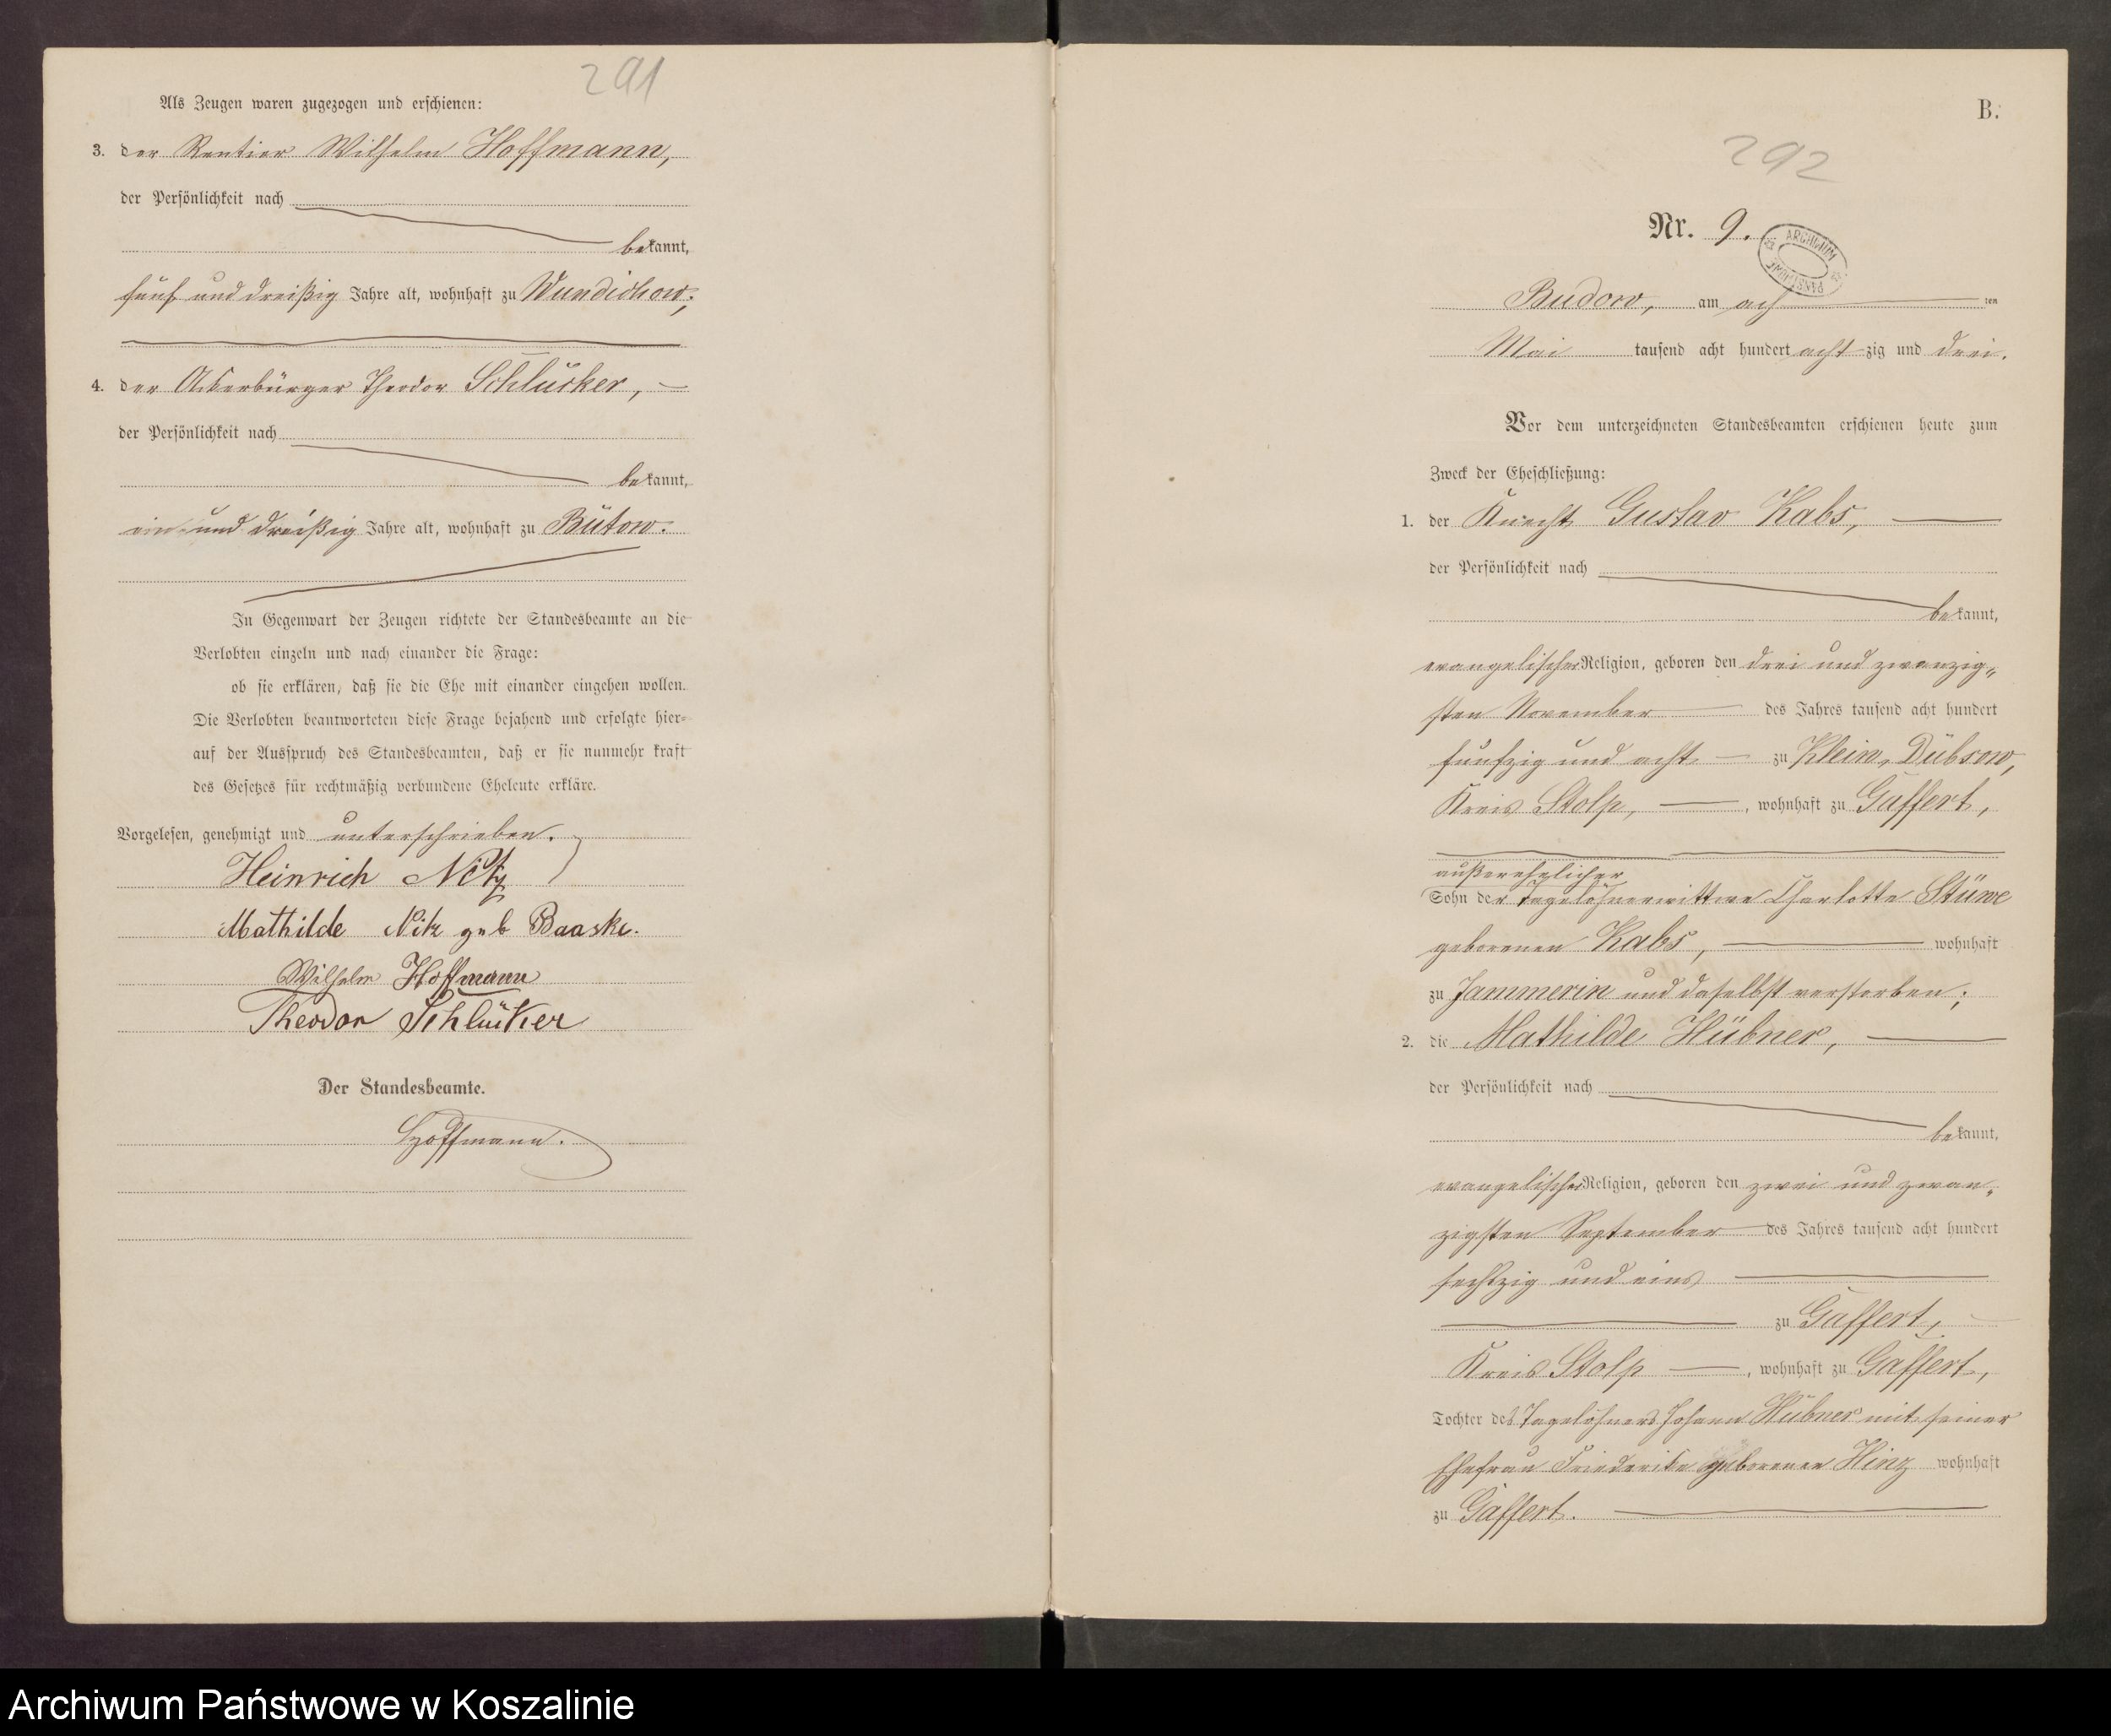 291
Als Zeugen waren zugezogen und erschienen:
3. der Rentier Wilhelm Hoffmann,
der Persönlichkeit nach
bekannt,
fünf und dreißig Jahre alt, wohnhaft zu Wundichow;
4. der Ackerbürger Theodor Schlücker,
der Persönlichkeit nach
bekannt,
ein und dreißig Jahre alt, wohnhaft zu Bütow.
In Gegenwart der Zeugen richtete der Standesbeamte an die
Verlobten einzeln und nach einander die Frage:
ob sie erklären, daß sie die Ehe mit einander eingehen wollen.
Die Verlobten beantworteten diese Frage bejahend und erfolgte hier-
auf der Ausspruch des Standesbeamten, daß er sie nunmehr kraft
des Gesetzes für rechtmäßig verbundene Eheleute erkläre.
Vorgelesen, genehmigt und unterschrieben.
Heinrich Nitz
Mathilde Nitz geb Baaske.
Wilhelm Hoffmann
Theodor Schlücker
Der Standesbeamte.
Hoffmann.
B.
292
Nr. 9.
ARCHIWUM PAŃSTWOWE
Budow, am ach ten
Mai tausend acht hundert acht zig und drei.
Vor dem unterzeichneten Standesbeamten erschienen heute zum
Zweck der Eheschließung:
1. der Knecht Gustav Kabs,
der Persönlichkeit nach
bekannt,
evangelischer Religion, geboren den drei und zwanzig-
sten November des Jahres tausend acht hundert
fünfzig und acht zu Klein-Dübsow,
Kreis Stolp, wohnhaft zu Gaffert,
außerehelicher
Sohn der Tagelöhnerwittwe Charlotte Stüwe
geborenen Kabs, wohnhaft
zu Jammerin und daselbst verstorben;
2. die Mathilde Hübner,
der Persönlichkeit nach
bekannt,
evangelischer Religion, geboren den zwei und zwan-
zigsten September des Jahres tausend acht hundert
sechszig und eins
zu Gaffert,
Kreis Stolp, wohnhaft zu Gaffert,
Tochter des Tagelöhners Johann Hübner mit seiner
Ehefrau Friederike geborenen Hinz wohnhaft
zu Gaffert.
Archiwum Państwowe w Koszalinie